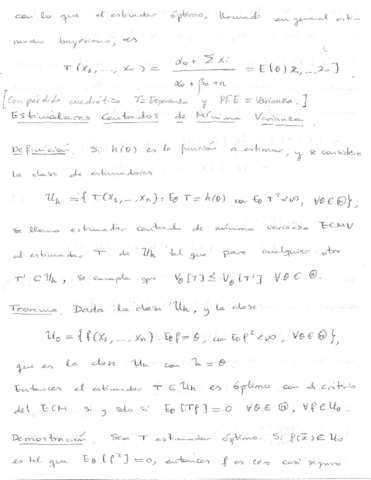 con lo que el estimador óptimo, llamado en general esti-
mador bayesiano, es
T(x₁, ..., xₙ) = (α₀ + Σ xᵢ) / (α₀ + β₀ + n) = E[θ | x₁ ... xₙ]
[Con pérdida cuadrática T = Esperanza y PFE = Varianza.]
Estimadores Centrados de Mínima Varianza
Definición. Si h(θ) es la función a estimar, y se considera
la clase de estimadores
Uₕ = {T(x₁, ..., xₙ) : E_θ T = h(θ) con E_θ T² < ∞, ∀θ ∈ Θ};
se llama estimador centrado de mínima varianza ECMV
al estimador T de Uₕ tal que para cualquier otro
T' ∈ Uₕ, se cumpla que V_θ[T] ≤ V_θ[T'] ∀θ ∈ Θ.
Teorema. Dada la clase Uₕ, y la clase
U₀ = {f(x₁, ..., xₙ) : E_θ f = 0, con E_θ f² < ∞, ∀θ ∈ Θ},
que es la clase Uₕ con h = 0.
Entonces el estimador T ∈ Uₕ es óptimo con el criterio
del ECM si y solo si E_θ[Tf] = 0 ∀θ ∈ Θ, ∀f ∈ U₀.
Demostración. Sea T estimador óptimo. Si f(x̄) ∈ U₀
es tal que E_θ[f²] = 0, entonces f es cero casi seguro